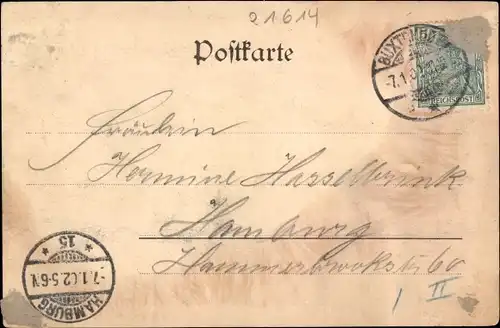 21614
Postkarte
BUXTEHUDE
-7.1.
REICHSPOST
Fräulein
Hermine Hasselbrink
Hamburg
Hammerbrookstr 60
I II
HAMBURG
-7.1.02.5-6N.
* 15 *